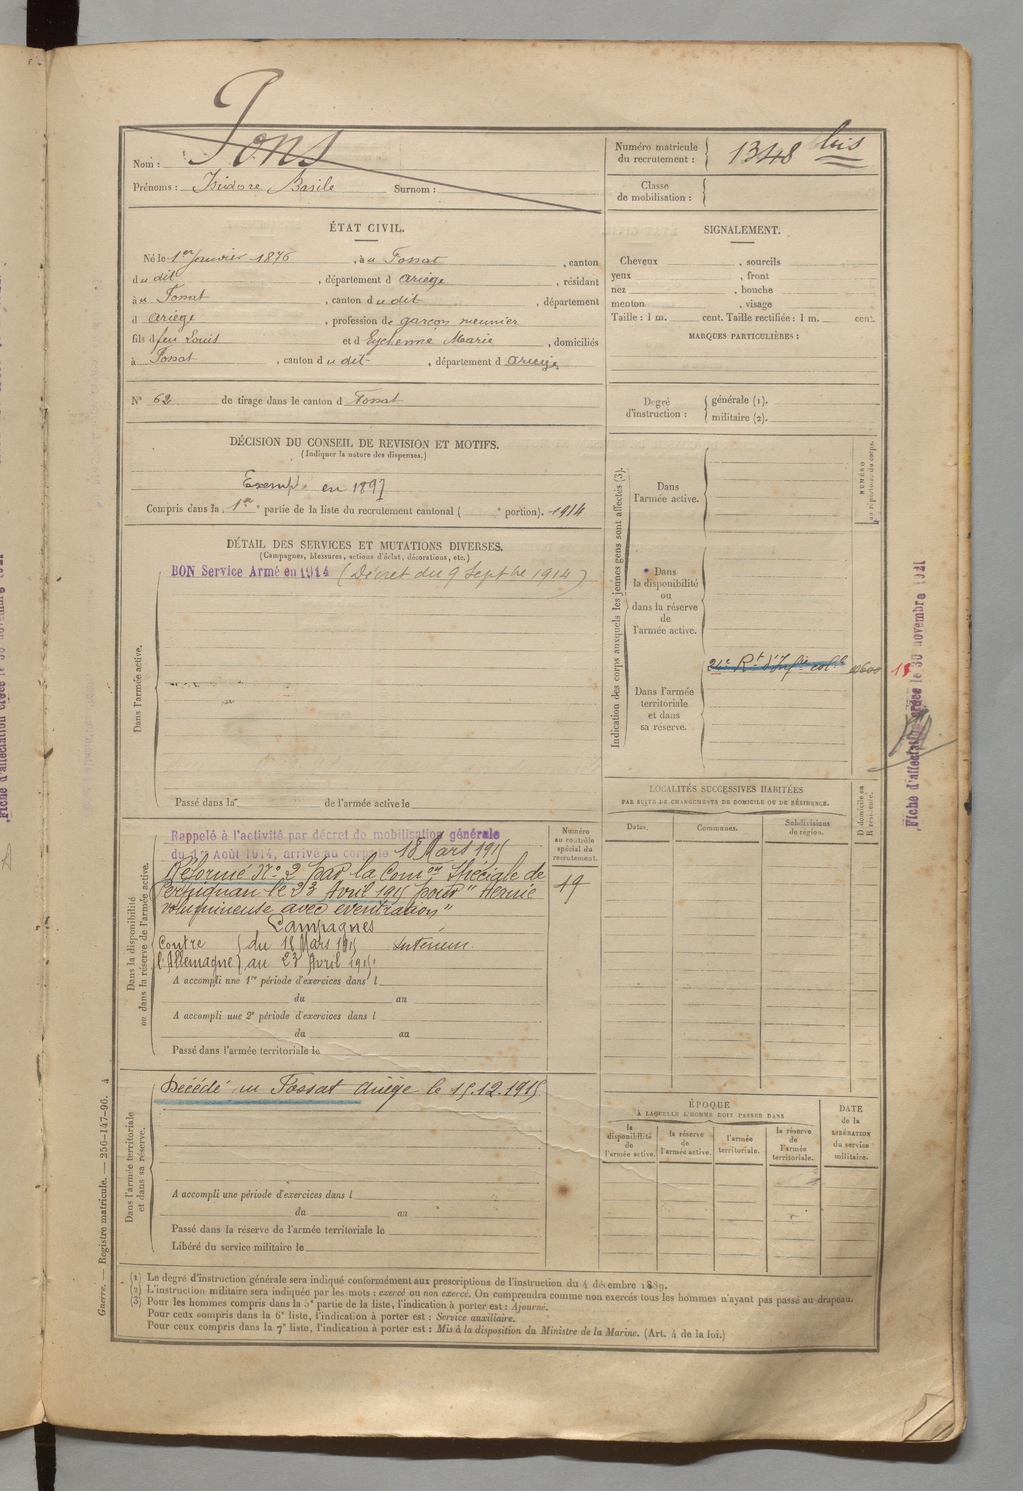 Nom : Pons
Prénoms : Isidore Basile Surnom :
Numéro matricule du recrutement : 1348 bis
Classe de mobilisation :
ÉTAT CIVIL.
Né le 1er Janvier 1876, à u Fossat, canton
d u dit, département d Ariège, résidant
à u Fossat, canton d u dit, département
d Ariège, profession de garçon meunier
fils d feu Louis et d Eychenne Marie, domiciliés
à Fossat, canton d u dit, département d Ariège
N° 62 de tirage dans le canton d Fossat
SIGNALEMENT.
Cheveux , sourcils
yeux , front
nez , bouche
menton , visage
Taille : 1 m. cent. Taille rectifiée : 1 m. cent.
MARQUES PARTICULIÈRES :
Degré d'instruction : générale (1).
militaire (2).
DÉCISION DU CONSEIL DE REVISION ET MOTIFS.
(Indiquer la nature des dispenses.)
Exempté en 1897
Compris dans la 1re partie de la liste du recrutement cantonal ( e portion). 1914
DÉTAIL DES SERVICES ET MUTATIONS DIVERSES.
(Campagnes, blessures, actions d'éclat, décorations, etc.)
Dans l'armée active.
BON Service Armé en 1914 (Décret du 9 Septbre 1914)
Passé dans la de l'armée active le
Indication des corps auxquels les jeunes gens sont affectés (3).
NUMÉRO au répertoire du corps.
Dans l'armée active.
Dans la disponibilité ou dans la réserve de l'armée active.
Dans l'armée territoriale et dans sa réserve.
24e Rt d'Infie colle
15
Fiche d'affectation créée le 30 novembre 1921
LOCALITÉS SUCCESSIVES HABITÉES
PAR SUITE DE CHANGEMENTS DE DOMICILE OU DE RÉSIDENCE.
Dates. Communes. Subdivisions de région. D domicile ou R résidence.
Dans la disponibilité ou dans la réserve de l'armée active.
Numéro au contrôle spécial du recrutement.
19
Rappelé à l'activité par décret de mobilisation générale
du 1er Août 1914, arrivé au corps le 18 Mars 1915
Réformé N° 2 par la Comon Spéciale de
Perpignan le 23 Avril 1915 pour "Hernie
volumineuse avec eventration"
Campagnes
Contre du 18 Mars 1915 Intérieur
l'Allemagne au 23 Avril 1915
A accompli une 1re période d'exercices dans l
du au
A accompli une 2e période d'exercices dans l
du au
Passé dans l'armée territoriale le
Dans l'armée territoriale et dans sa réserve.
Décédé au Fossat Ariège le 15.12.1915
A accompli une période d'exercices dans l
du au
Passé dans la réserve de l'armée territoriale le
Libéré du service militaire le
ÉPOQUE
À LAQUELLE L'HOMME DOIT PASSER DANS
la disponibilité de l'armée active. la réserve de l'armée active. l'armée territoriale. la réserve de l'armée territoriale.
DATE de la LIBÉRATION du service militaire.
(1) Le degré d'instruction générale sera indiqué conformément aux prescriptions de l'instruction du 4 décembre 1889.
(2) L'instruction militaire sera indiquée par les mots : exercé ou non exercé. On comprendra comme non exercés tous les hommes n'ayant pas passé au drapeau.
(3) Pour les hommes compris dans la 5e partie de la liste, l'indication à porter est : Ajourné.
Pour ceux compris dans la 6e liste, l'indication à porter est : Service auxiliaire.
Pour ceux compris dans la 7e liste, l'indication à porter est : Mis à la disposition du Ministre de la Marine. (Art. 4 de la loi.)
Guerre. — Registre matricule. — 250-147-96. 4